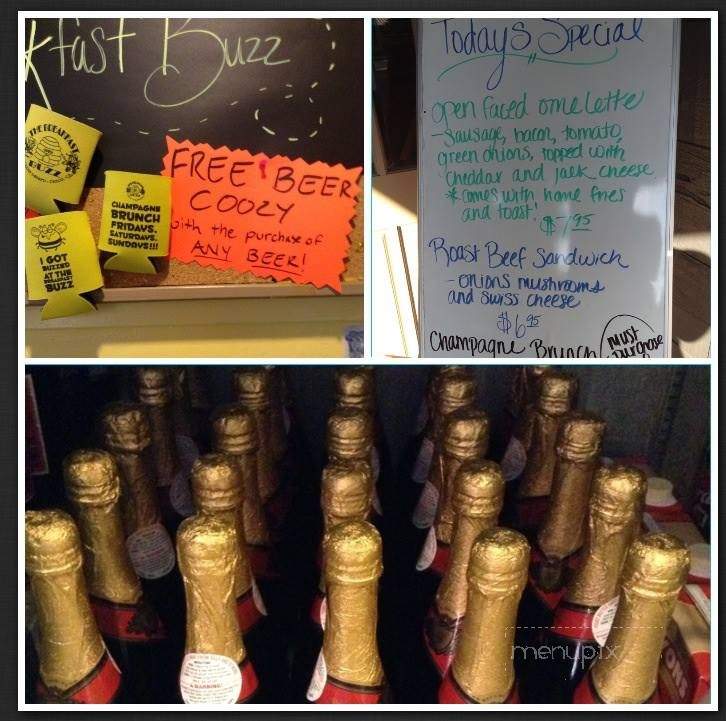 kfast Buzz
THE BREAKFAST
BUZZ
CHAMPAGNE
BRUNCH
FRIDAYS,
SATURDAYS,
SUNDAYS!!!
I GOT
BUZZED
AT THE
BREAKFAST
BUZZ
FREE BEER
COOZY
with the purchase of
ANY BEER!
Todays Special
open faced omelette
- sausage, bacon, tomato,
green onions, topped with
cheddar and jack cheese
* comes with home fries
and toast!
$7.95
Roast Beef Sandwich
- onions mushrooms
and swiss cheese
$6.95
Champagne Brunch
Must
purchase
WARNING
menupix